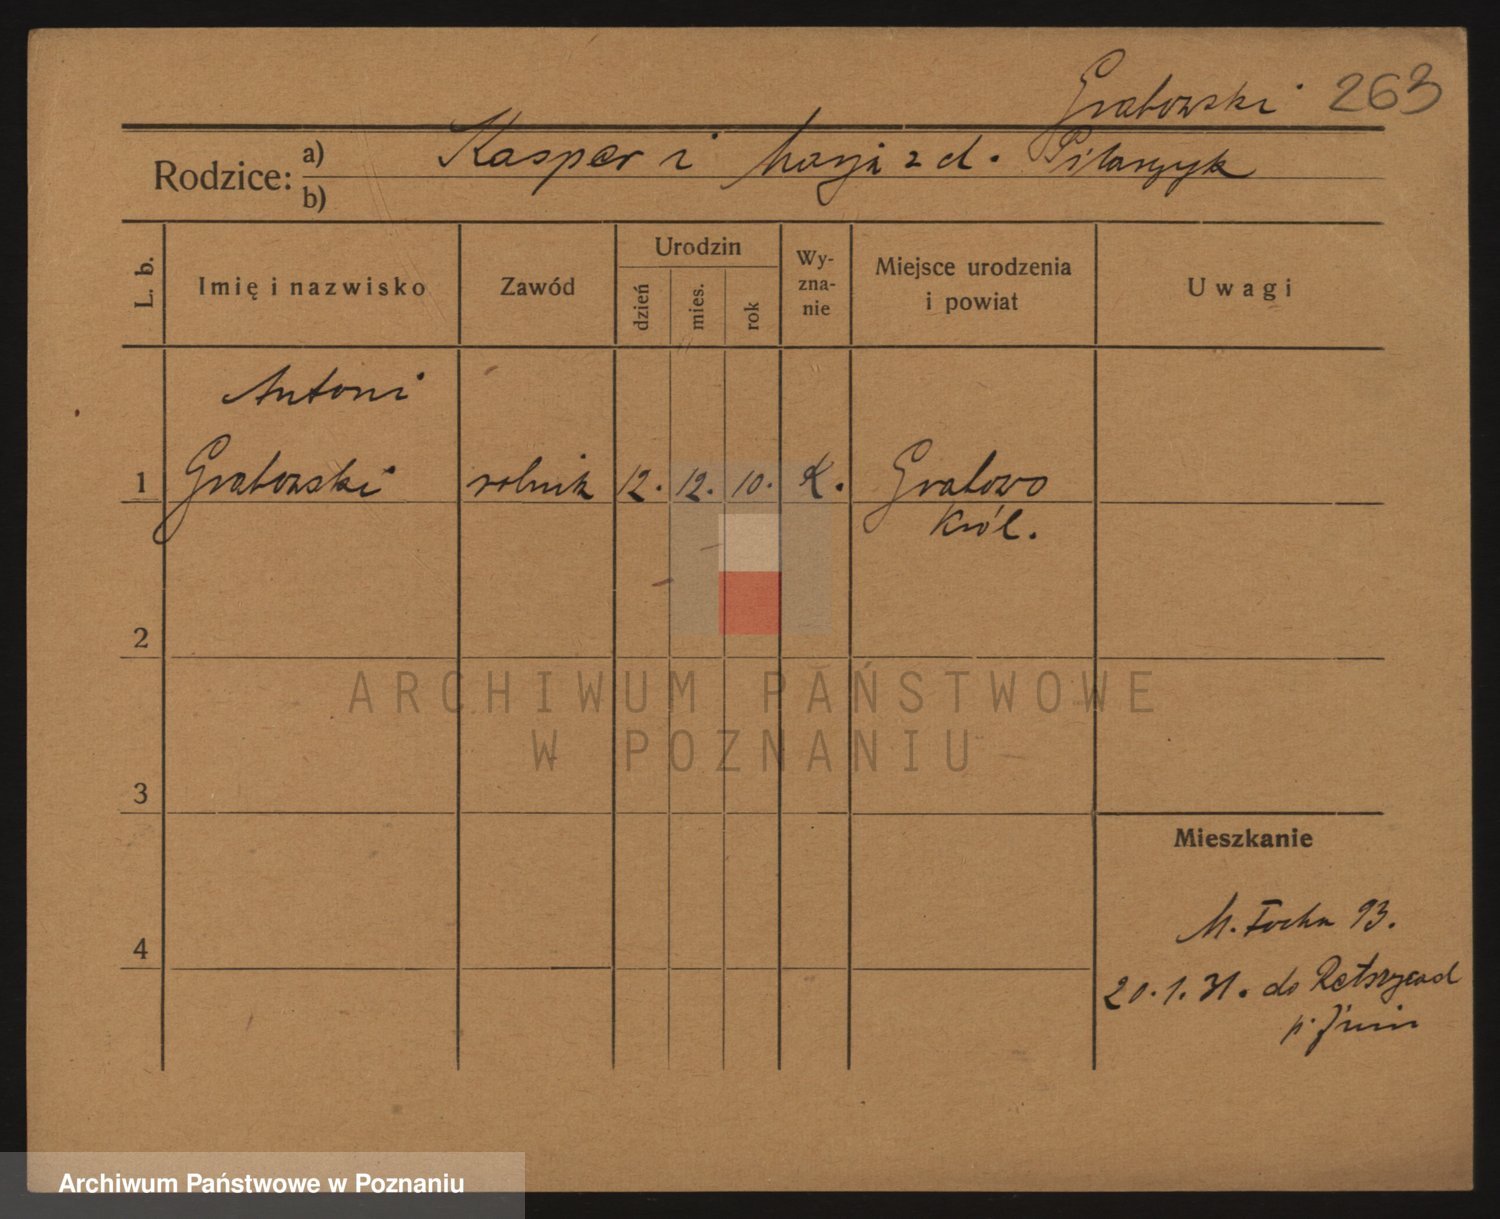 Grabowski 263
Rodzice: a) Kasper i Marja z d. Pilarczyk
b)
L. b.
Imię i nazwisko
Zawód
Urodzin
dzień
mies.
rok
Wy-
zna-
nie
Miejsce urodzenia
i powiat
Uwagi
Antoni
1 Grabowski rolnik 12. 12. 10. K. Grabowo
Król.
2
ARCHIWUM PAŃSTWOWE
W POZNANIU
3
Mieszkanie
M. Focha 93.
4
20.1.31. do
p. Żnin
Archiwum Państwowe w Poznaniu